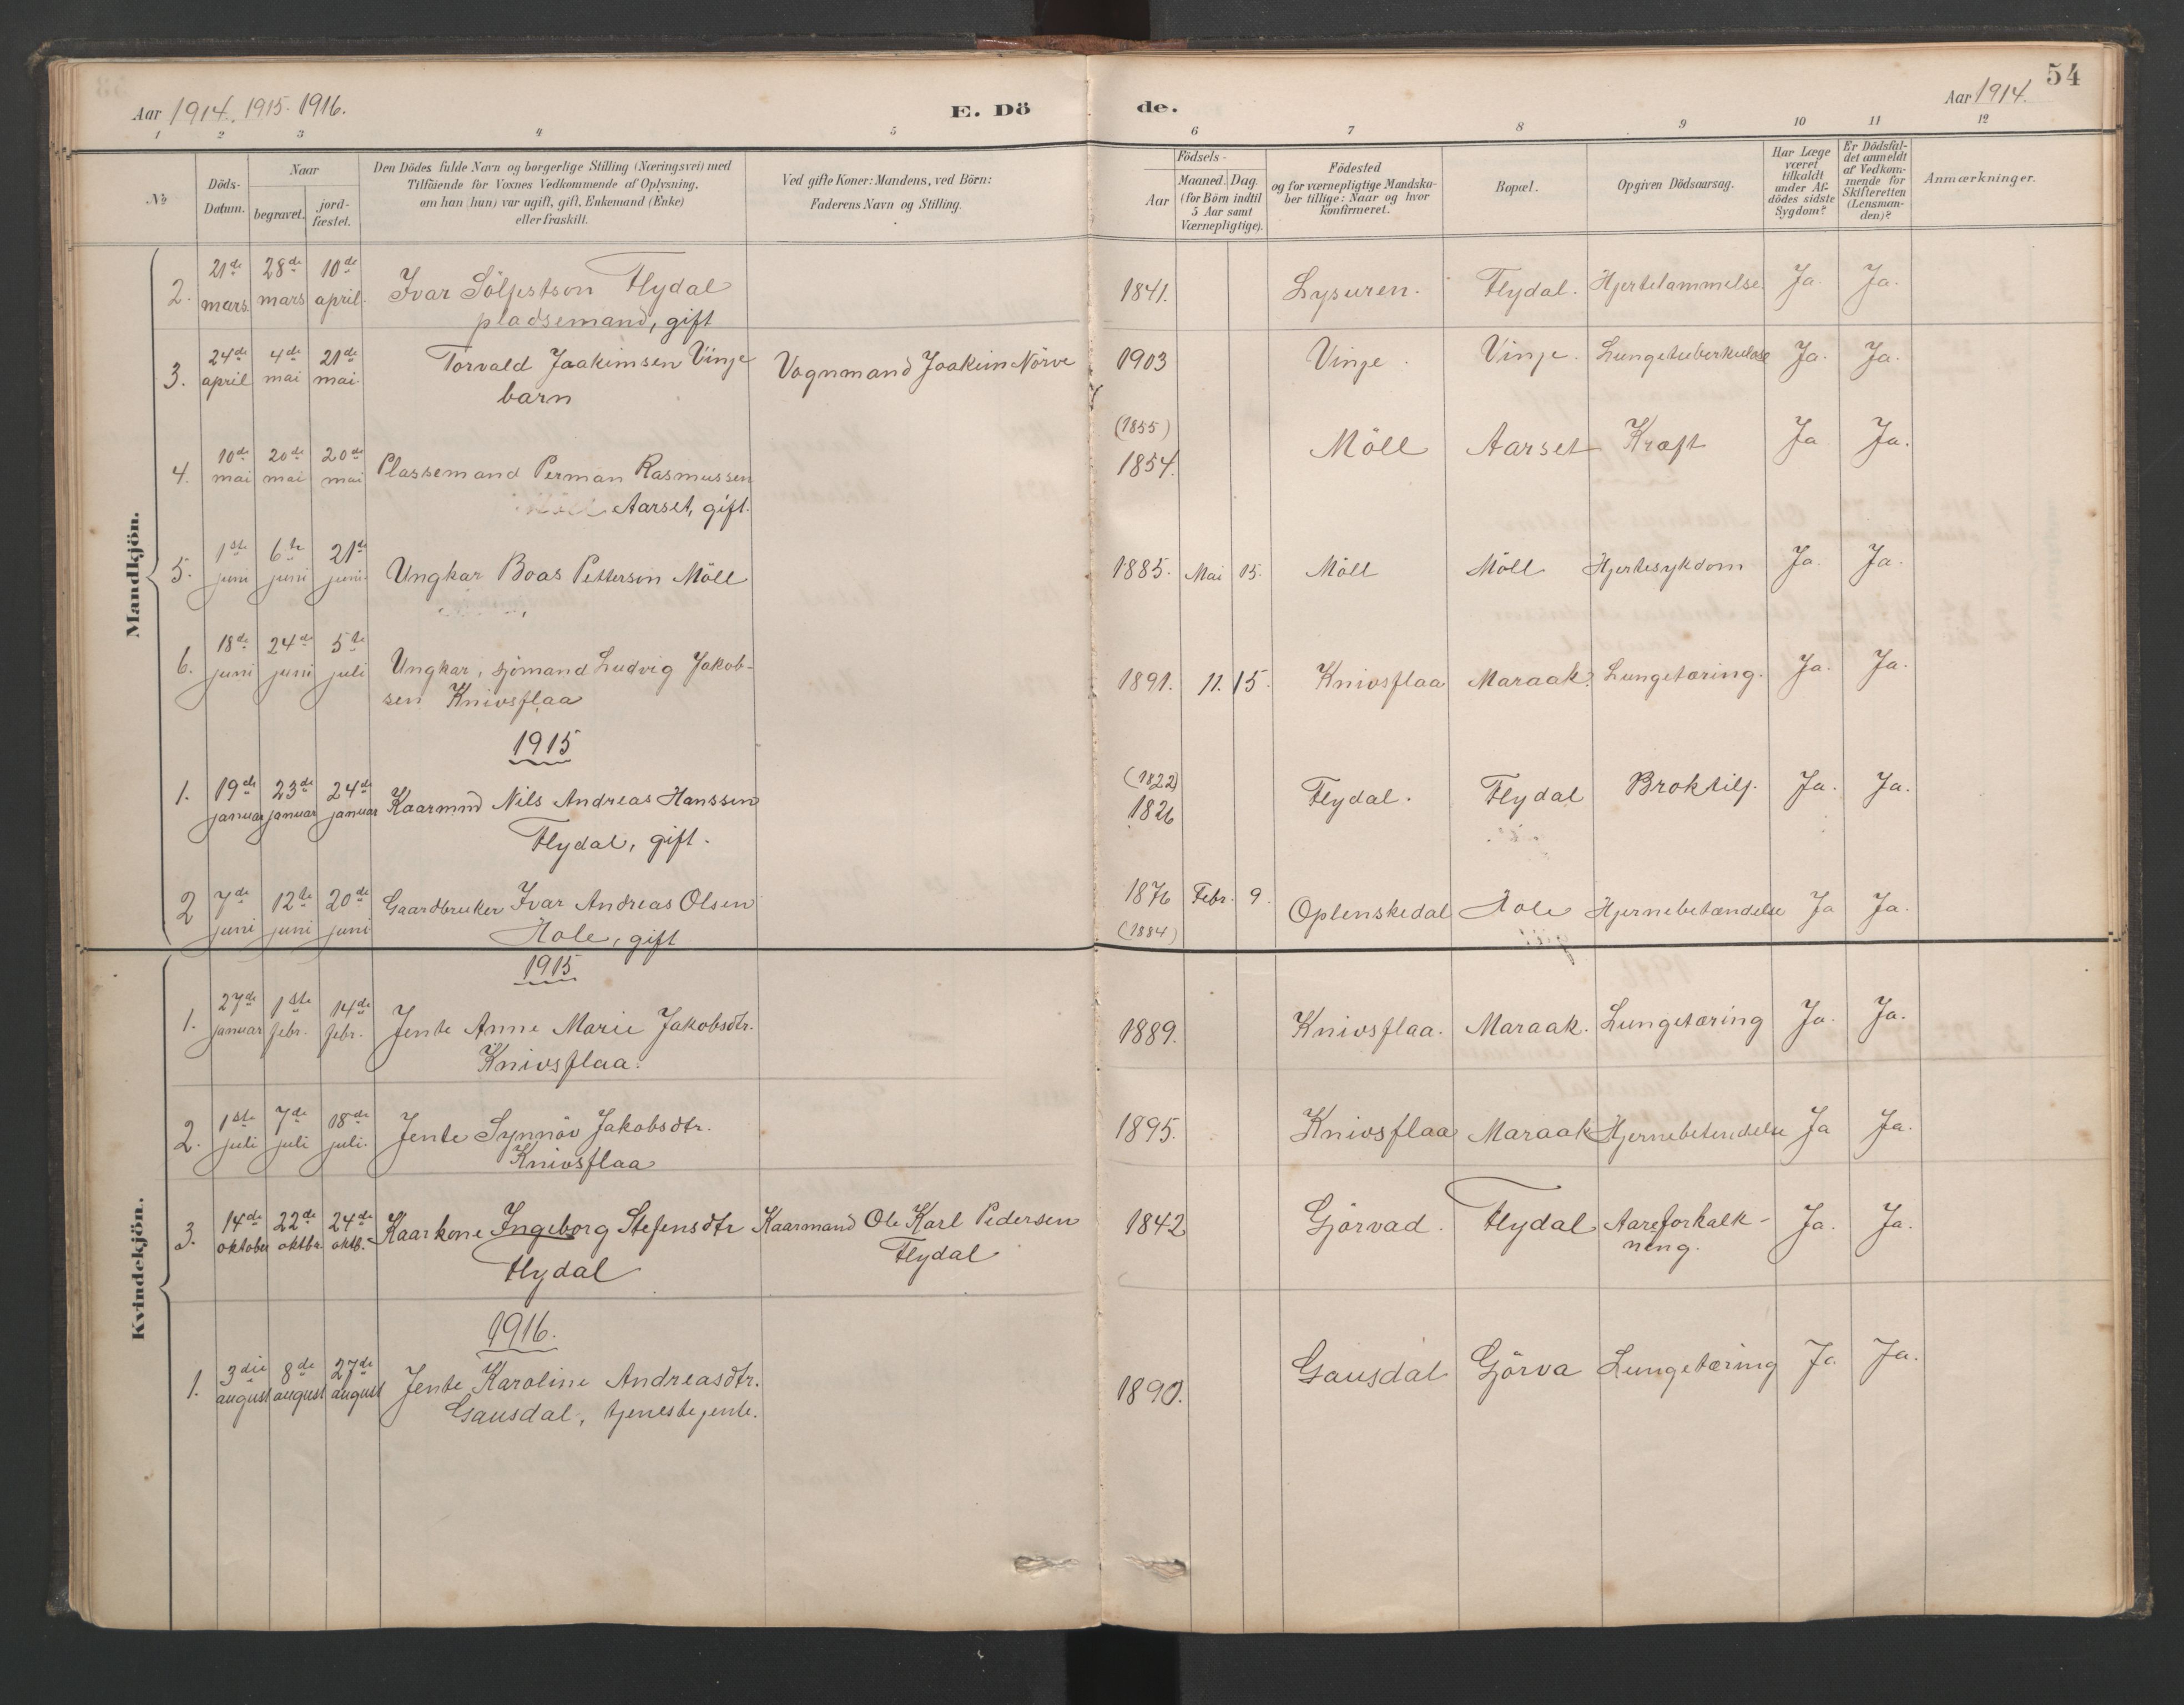 54
Aar 1914. 1915. 1916.
E. Dö de.
Aar 1914.
1 2 3 4 5 6 7 8 9 10 11 12
№
Döds-
Datum.
Naar
begravet.
jord-
fæstet.
Den Dödes fulde Navn og borgerlige Stilling (Næringsvei) med
Tilföiende for Voxnes Vedkommende af Oplysning,
om han (hun) var ugift, gift, Enkemand (Enke)
eller fraskilt.
Ved gifte Koner: Mandens, ved Börn:
Faderens Navn og Stilling.
Födsels-
Aar
Maaned. Dag.
(for Börn indtil
5 Aar samt
Værnepligtige).
Födested
og for værnepligtige Mandska-
ber tillige: Naar og hvor
konfirmeret.
Bopæl.
Opgiven Dödsaarsag.
Har Læge
været
tilkaldt
under Af-
dödes sidste
Sygdom?
Er Dödsfal-
det anmeldt
af Vedkom-
mende for
Skifteretten
(Lensman-
den)?
Anmærkninger.
Mandkjön.
2. 21de mars 28de mars 10de april. Ivar Sölfestson Flydal 1841. Lysuren. Flydal. Hjertelammelse. Ja. Ja.
pladsemand, gift
3. 24de april 4de mai 21de mai. Torvald Joakimsen Vinje Vognmand Joakim Nörve 1903 Vinje. Vinje. Lungetuberkulose Ja. Ja.
barn
(1855)
4. 10de mai 20de mai 20de mai Plassemand Perman Rasmussen 1854. Möll Aarset Kræft Ja Ja.
Aarset, gift.
5. 1ste juni 6te juni 21de juni Ungkar Boas Petterson Möll 1885. Mai 15. Möll Möll Hjertesykdom Ja. Ja.
6. 18de juni 24de juni 5te juli Ungkar, sjömand Ludvig Jakob- 1891. 11. 15. Knivsflaa Maraak. Lungetæring. Ja. Ja.
sen Knivsflaa
1915
(1822)
1. 19de januar 23de januar 24de januar Kaarmnd Nils Andreas Hanssen 1826 Flydal. Flydal Broktilf. Ja. Ja.
Flydal, gift.
2 7de juni 12te juni 20de juni Gaardbruker Ivar Andreas Olsen 1876 Febr. 9. Oplenskedal Hole Hjernebetændelse Ja Ja.
Hole, gift
(1884)
Kvindekjön.
1915
1. 27de januar 1ste febr. 14de febr. Jente Anne Marie Jakobsdtr. 1889. Knivsflaa. Maraak. Lungetæring Ja. Ja.
Knivsflaa.
2. 1ste juli 7de juli 18de juli. Jente Synnöv Jakobsdtr. 1895. Knivsflaa Maraak Hjernebetendelse Ja Ja.
Knivsflaa
3. 14de oktober 22de oktbr. 24de oktb. Kaarkone Ingeborg Stefensdtr Kaarmand Ole Karl Pedersen 1842 Gjörvad. Flydal Aareforkalk- Ja. Ja.
Flydal Flydal ning.
1916.
1. 3die august 8de august 27de august Jente Karoline Andreasdtr. 1890. Gausdal Gjörva Lungetæring Ja Ja.
Gausdal, tjenestejente.